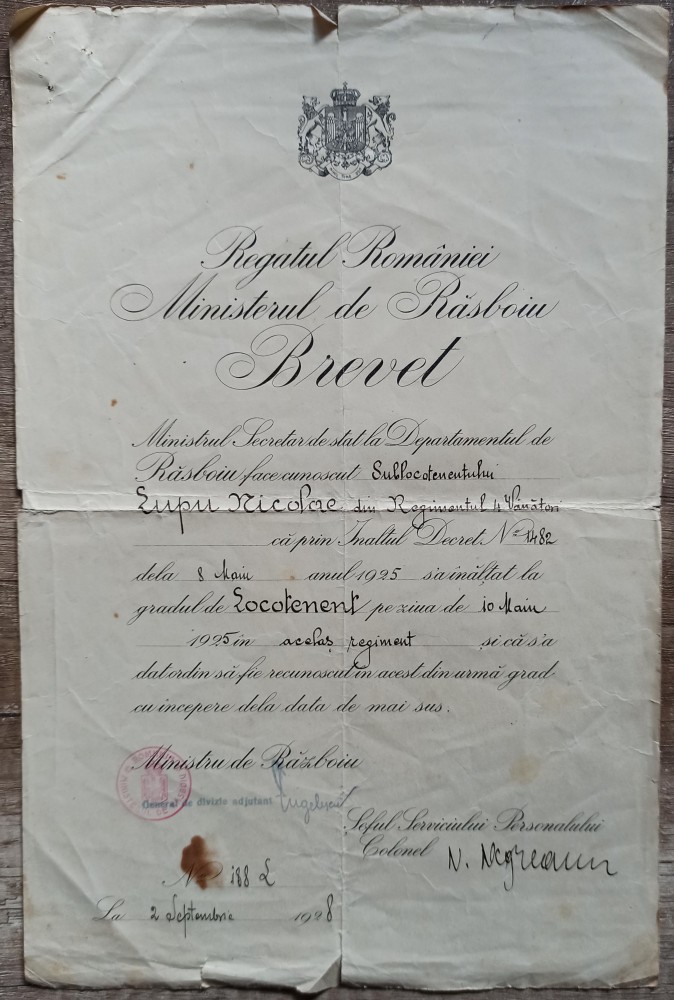 Regatul României
Ministerul de Răsboiu
Brevet
Ministrul Secretar de stat la Departamentul de
Răsboiu face cunoscut Sublocotenentului
Lupu Nicolae din Regimentul 4 Vânători
că prin Inaltul Decret No 1482
dela 8 Maiu anul 1925 s'a înălțat la
gradul de Locotenent pe ziua de 10 Maiu
1925 în acelaș regiment și că s'a
dat ordin să fie recunoscut în acest din urmă grad
cu incepere dela data de mai sus.
Ministru de Războiu
General de divizie adjutant
Șeful Serviciului Personalului
Colonel N. Negreanu
No 188 L
La 2 Septembrie 1928